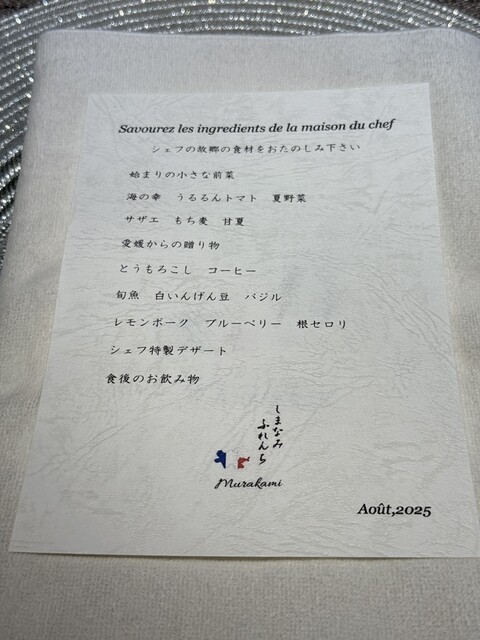 Savourez les ingredients de la maison du chef
シェフの故郷の食材をおたのしみ下さい
始まりの小さな前菜
海の幸　うるるんトマト　夏野菜
サザエ　もち麦　甘夏
愛媛からの贈り物
とうもろこし　コーヒー
旬魚　白いんげん豆　バジル
レモンポーク　ブルーベリー　根セロリ
シェフ特製デザート
食後のお飲み物
しまなみ
ふれんち
Murakami
Août,2025